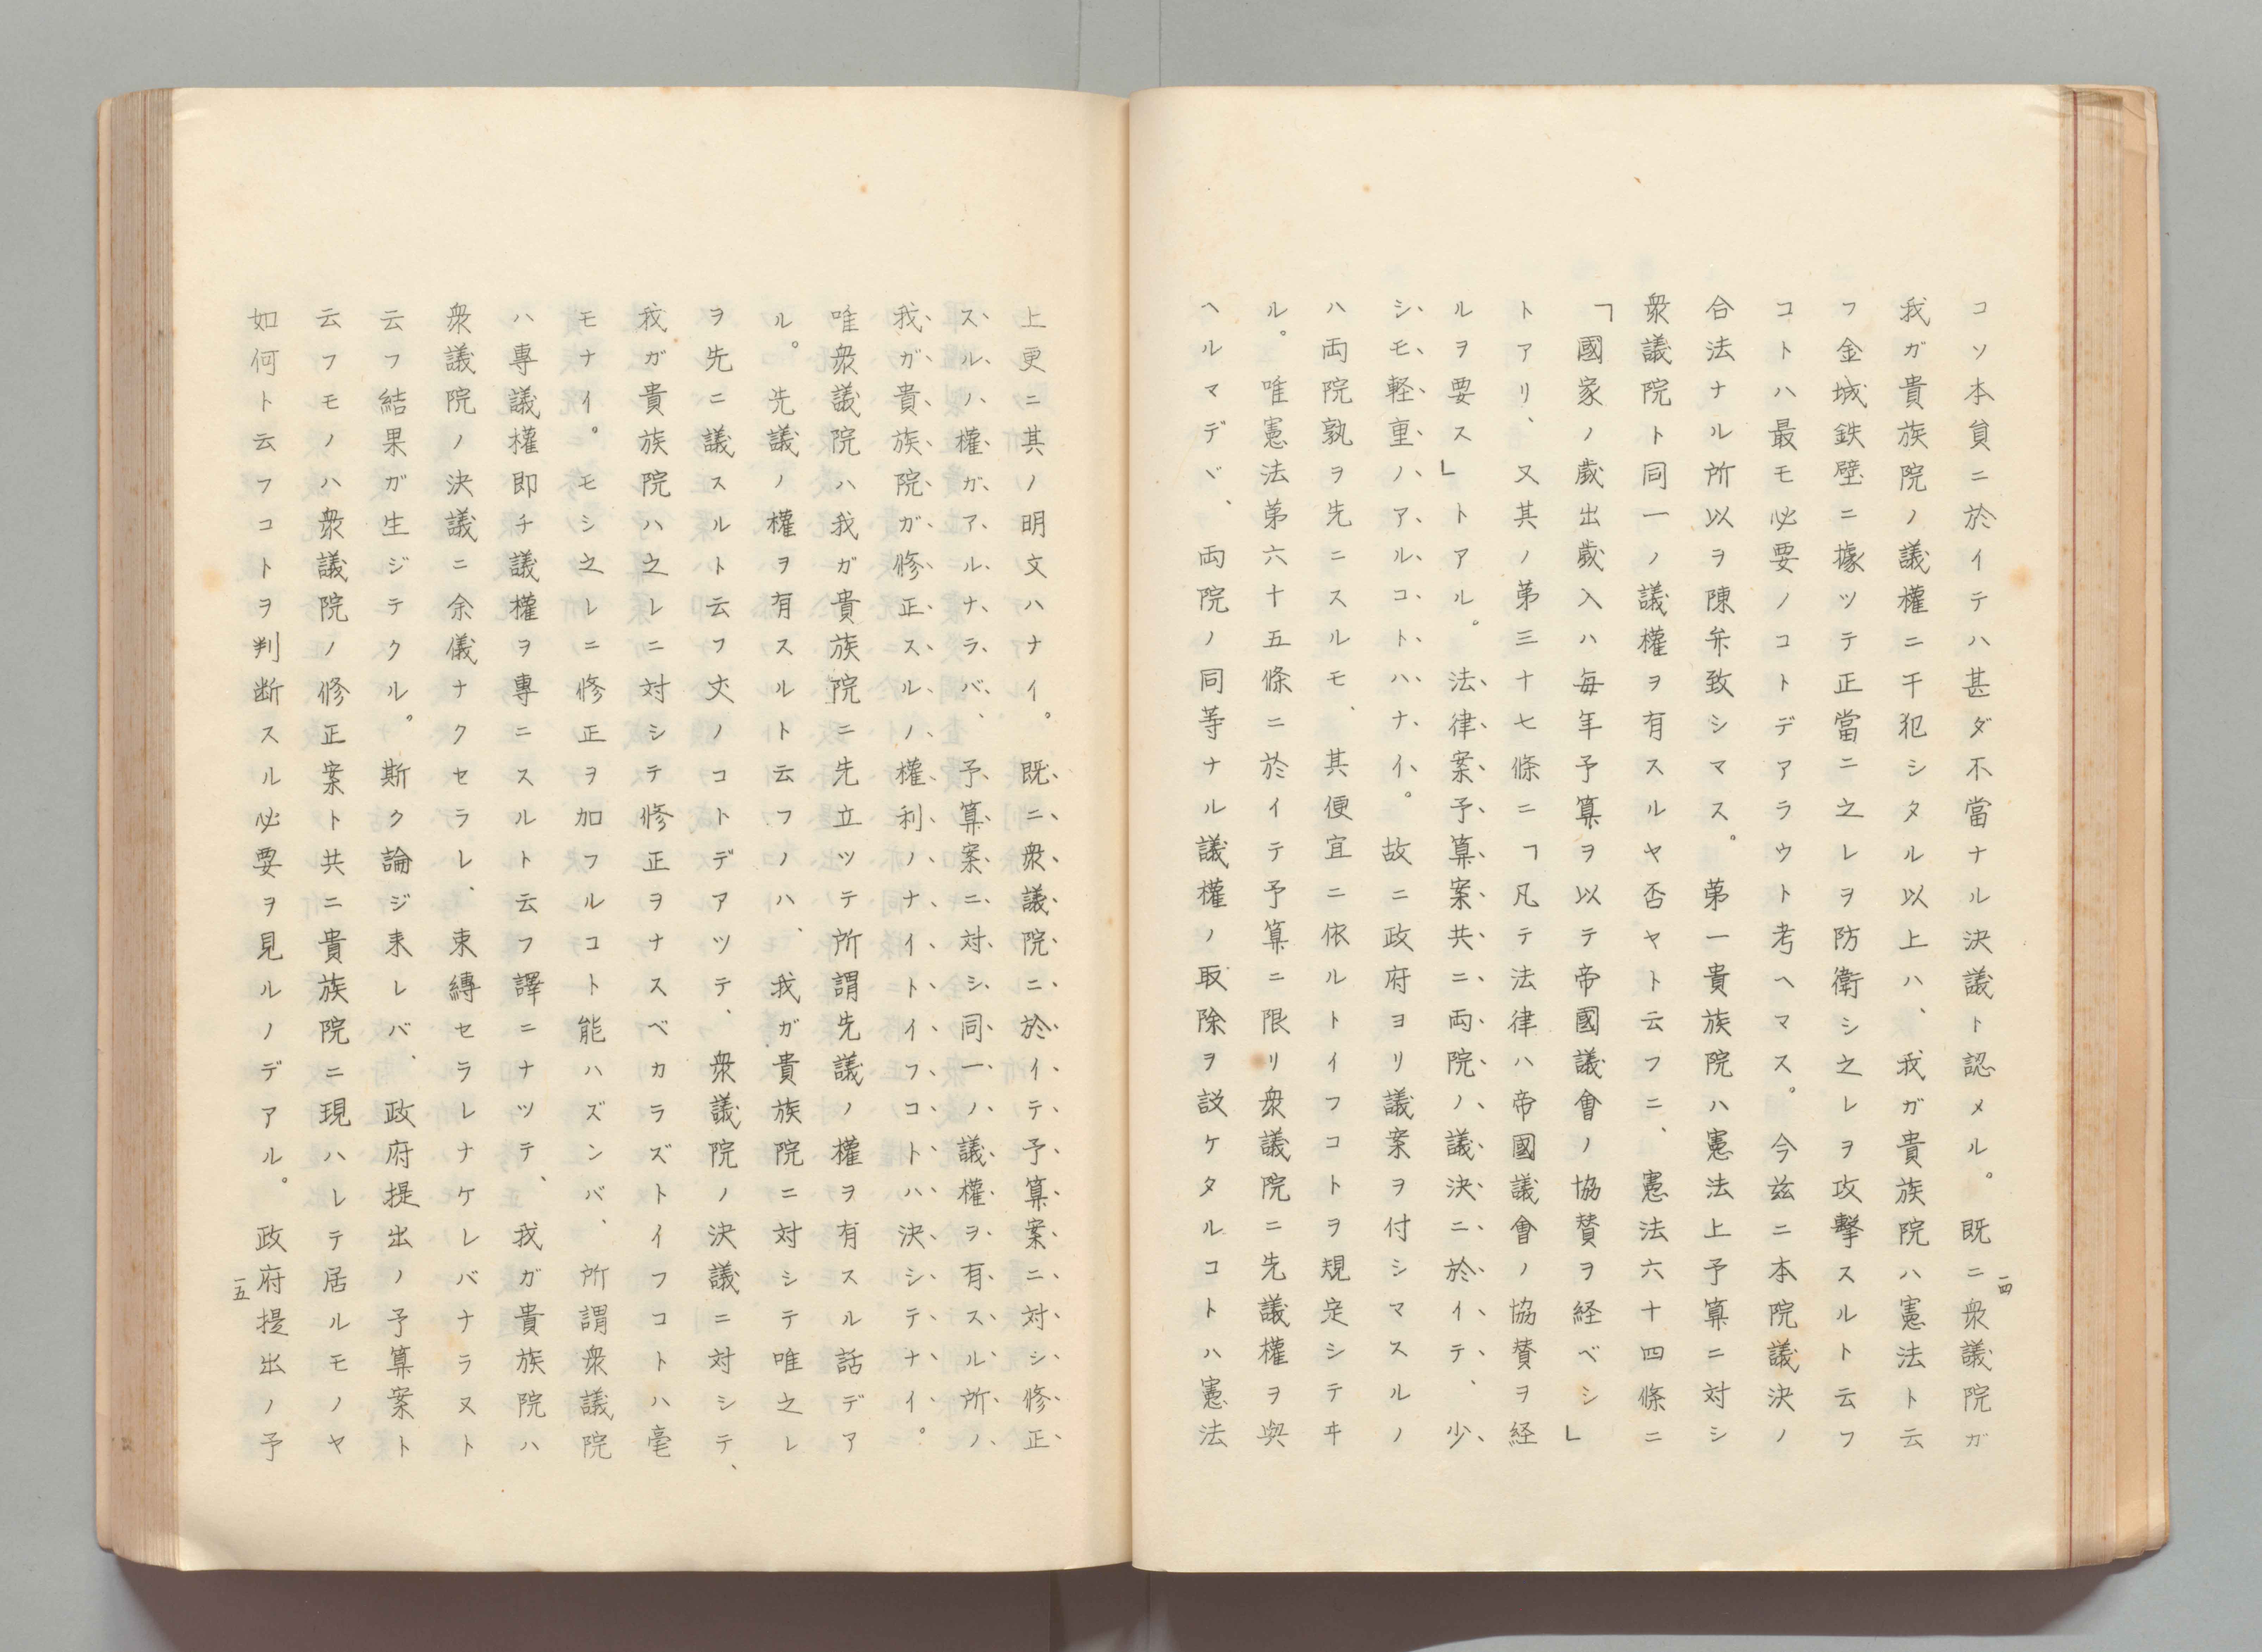 コソ本員ニ於イテハ甚ダ不當ナル決議ト認メル。既ニ衆議院ガ
我ガ貴族院ノ議權ニ干犯シタル以上ハ、我ガ貴族院ハ憲法ト云
フ金城鉄壁ニ據ツテ正當ニ之レヲ防衛シ之レヲ攻擊スルト云フ
コトハ最モ必要ノコトデアラウト考ヘマス。今玆ニ本院議決ノ
合法ナル所以ヲ陳弁致シマス。第一貴族院ハ憲法上予算ニ対シ
衆議院ト同一ノ議權ヲ有スルヤ否ヤト云フニ、憲法六十四條ニ
「國家ノ歲出歲入ハ毎年予算ヲ以テ帝國議會ノ協賛ヲ経ベシ」
トアリ、又其ノ第三十七條ニ「凡テ法律ハ帝國議會ノ協賛ヲ経
ルヲ要ス」トアル。法律案予算案共ニ両院ノ議決ニ於イテ、少
シモ軽重ノアルコトハナイ。故ニ政府ヨリ議案ヲ付シマスルノ
ハ両院孰ヲ先ニスルモ、其便宜ニ依ルトイフコトヲ規定シテヰ
ル。唯憲法第六十五條ニ於イテ予算ニ限リ衆議院ニ先議權ヲ與
ヘルマデヾ、両院ノ同等ナル議權ノ取除ヲ設ケタルコトハ憲法
一四
上更ニ其ノ明文ハナイ。既ニ衆議院ニ於イテ予算案ニ対シ修正
スルノ權ガアルナラバ、予算案ニ対シ同一ノ議權ヲ有スル所ノ
我ガ貴族院ガ修正スルノ權利ノナイトイフコトハ決シテナイ。
唯衆議院ハ我ガ貴族院ニ先立ツテ所謂先議ノ權ヲ有スル話デア
ル。先議ノ權ヲ有スルト云フノハ、我ガ貴族院ニ対シテ唯之レ
ヲ先ニ議スルト云フ丈ノコトデアツテ、衆議院ノ決議ニ対シテ、
我ガ貴族院ハ之レニ対シテ修正ヲナスベカラズトイフコトハ毫
モナイ。モシ之レニ修正ヲ加フルコト能ハズンバ、所謂衆議院
ハ專議權即チ議權ヲ專ニスルト云フ譯ニナツテ、我ガ貴族院ハ
衆議院ノ決議ニ余儀ナクセラレ、束縛セラレナケレバナラヌト
云フ結果ガ生ジテクル。斯ク論ジ来レバ、政府提出ノ予算案ト
云フモノハ衆議院ノ修正案ト共ニ貴族院ニ現ハレテ居ルモノヤ
如何ト云フコトヲ判断スル必要ヲ見ルノデアル。政府提出ノ予
一五